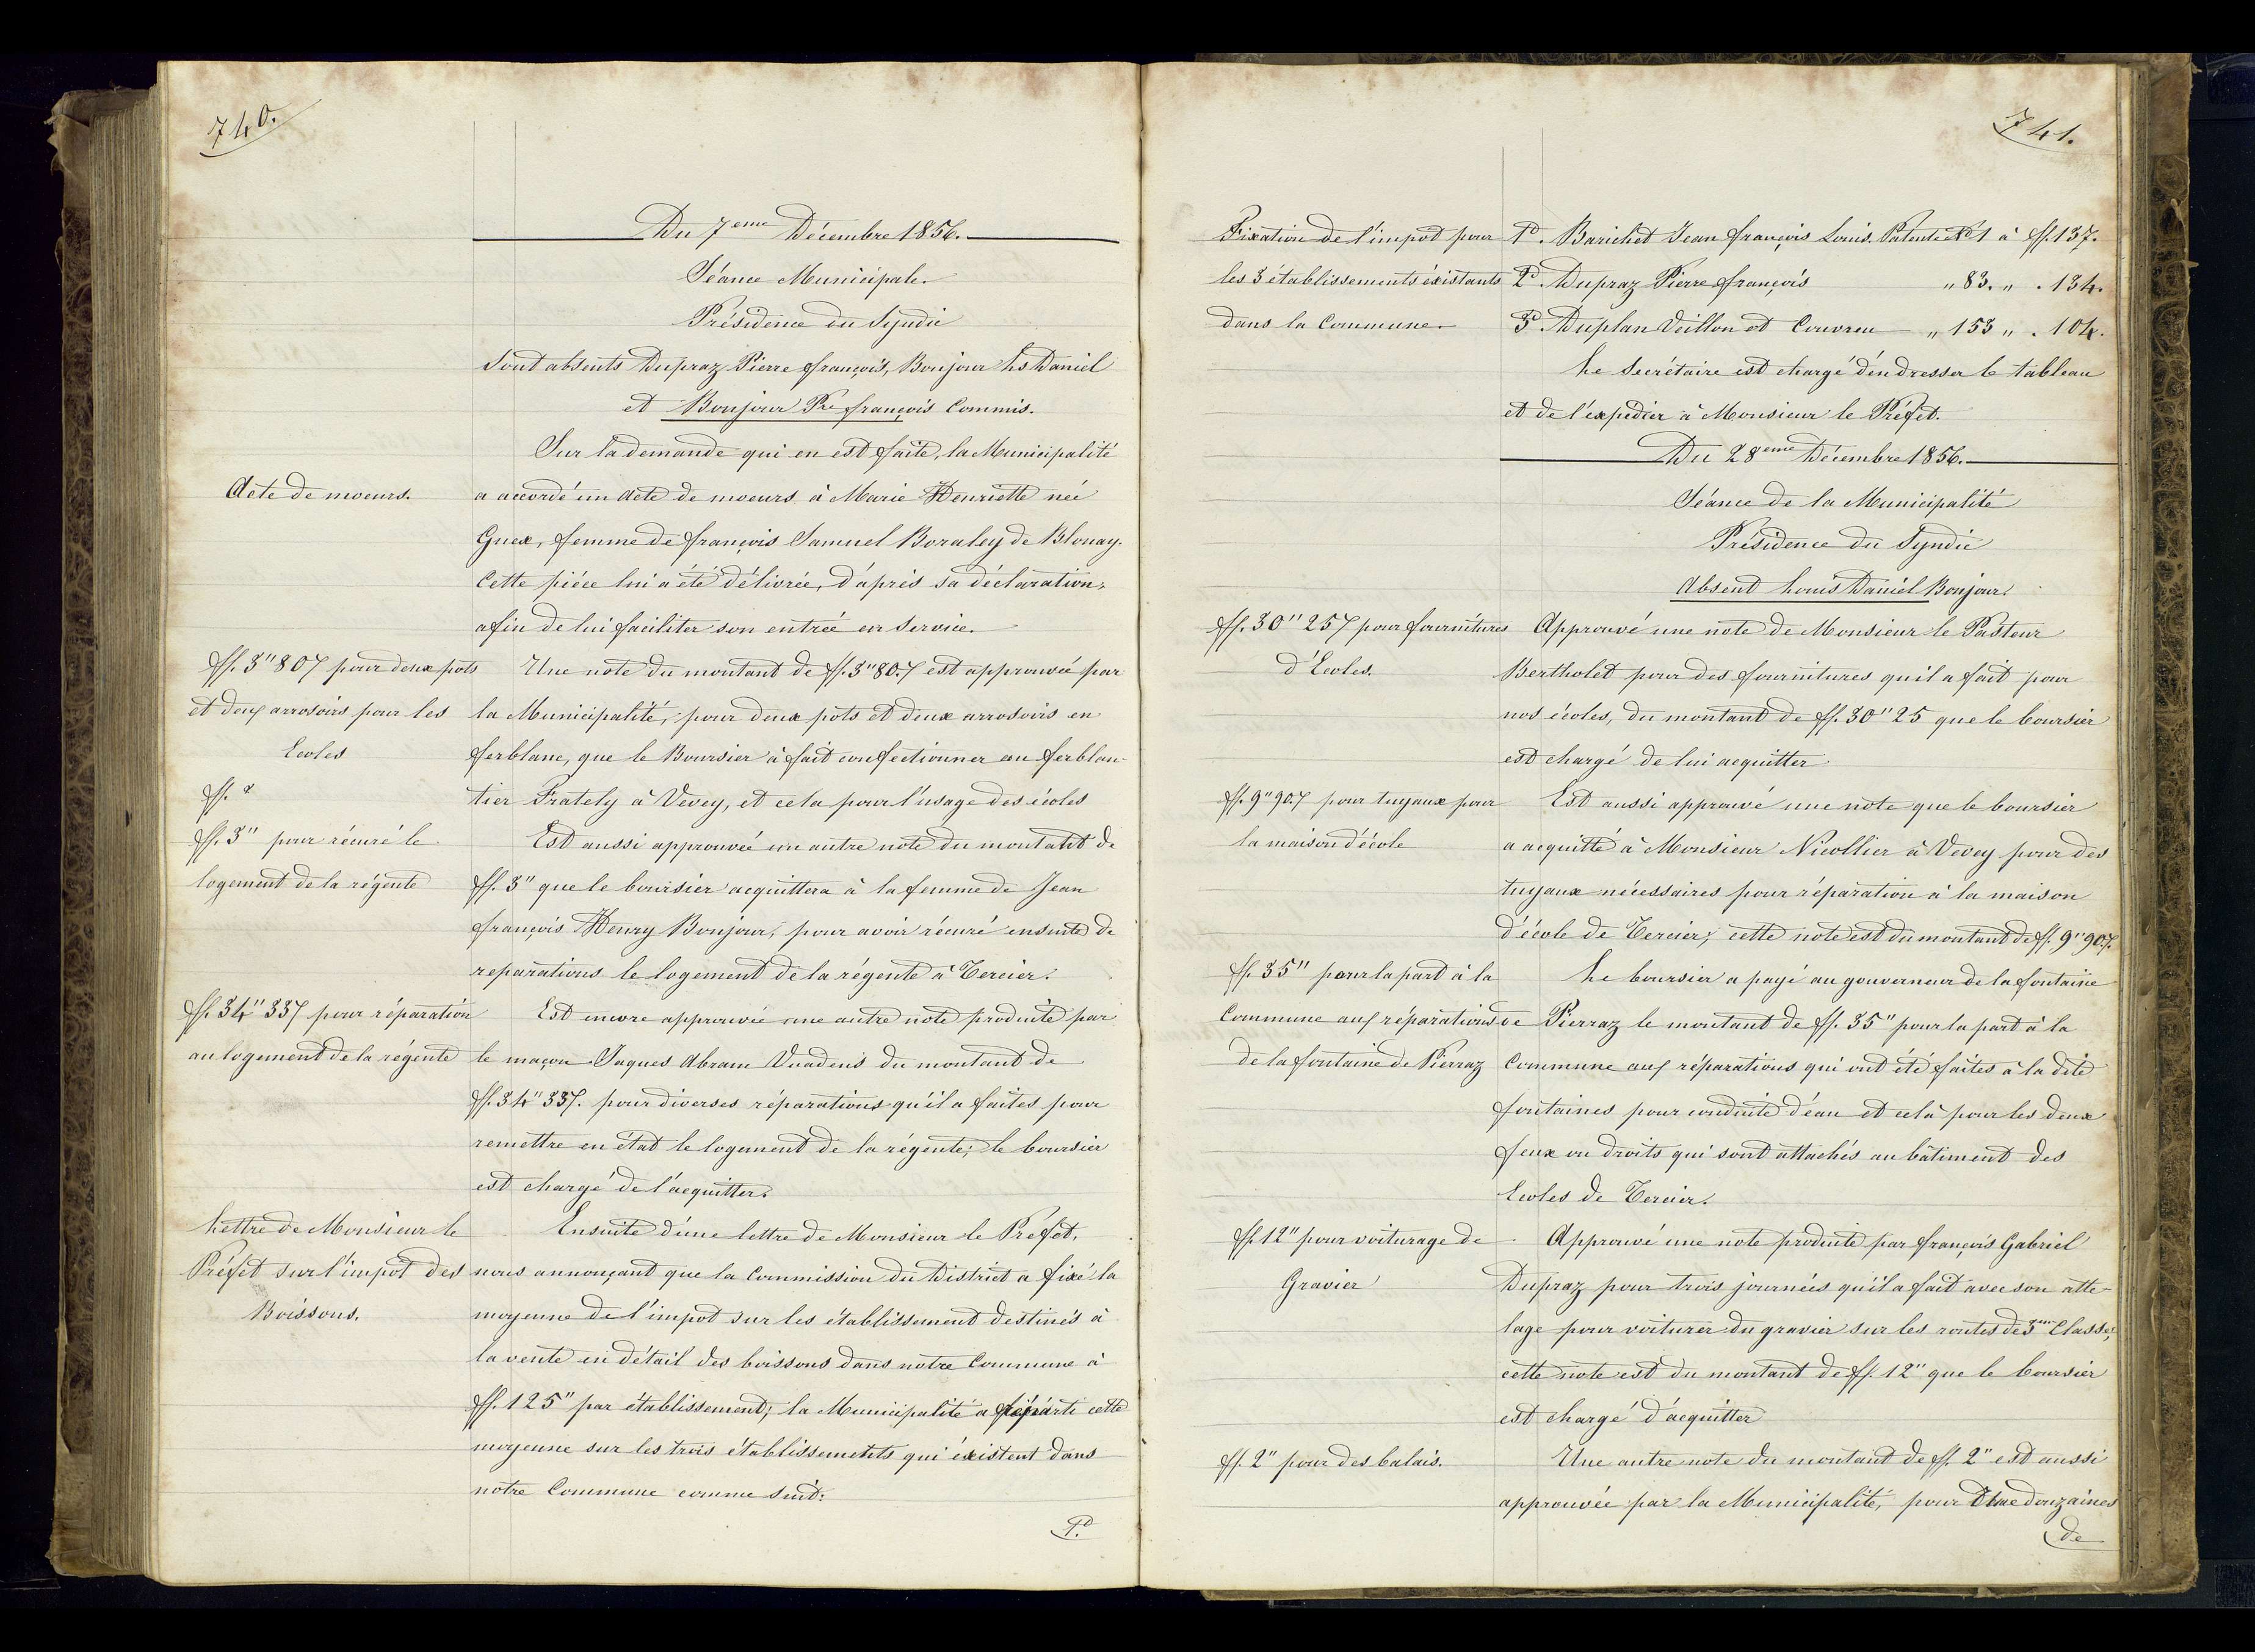 740.
Du 7eme Décembre 1856.
Séance Municipale.
Présidence du Syndic
Sont absents Dupraz Pierre françois, Bonjour Ls Daniel
et Bonjour Pre françois Commis.
Sur la demande qui en est faite, la Municipalité
Acte de moeurs.
a accordé un acte de moeurs à Marie Henriette née
Guex, femme de françois Samuel Boraley de Blonay.
Cette pièce lui a été délivrée, d'après sa déclaration,
afin de lui faciliter son entrée en service.
ff. 3"807 pour deux pots
et deux arrosoirs pour les
Ecoles
Une note du montant de ff. 3"80.7 est approuvée par
la Municipalité, pour deux pots et deux arrosoirs en
ferblanc, que le Boursier à fait confectionner au ferblan-
tier Frately à Vevey, et cela pour l'usage des écoles
ff.
ff. 3" pour récuré le
logement de la régente
Est aussi approuvée un autre note du montant de
ff. 3" que le boursier acquittera à la femme de Jean
françois Henry Bonjour, pour avoir récuré ensuite de
reparations le logement de la régente à Tercier.
ff. 34"337 pour réparation
au logement de la régente
Est encore approuvée une autre note produite par
le maçon Jaques Abram Vuadens du montant de
ff. 34"337. pour diverses réparations qu'il a faites pour
remettre en état le logement de la régente; le boursier
est chargé de l'acquitter.
Lettre de Monsieur le
Préfet sur l'impot des
Boissons.
Ensuite d'une lettre de Monsieur le Préfet,
nous annonçant que la Commission du District a fixé la
moyenne de l'impot sur les établissement destinés à
la vente en détail des boissons dans notre Commune à
ff. 125" par établissement; la Municipalité a réparti cette
moyenne sur les trois établissements qui éxistent dans
notre Commune comme suit:
1o
741.
Fixation de l'impot pour
les 3 établissements éxistants
dans la Commune.
1o. Barichet Jean françois Louis. Patente No 1 à ff. 137.
2o. Dupraz Pierre françois " 83. " . 134.
3o. Duplan Veillon et Couvreu " 153 " . 104.
Le Secrétaire est chargé d'en dresser le tableau
et de l'expedier à Monsieur le Préfet.
Du 28eme Décembre 1856.
Séance de la Municipalité
Présidence du Syndic
Absent Louis Daniel Bonjour.
ff. 30"257 pour fournitures
d'Ecoles.
Approuvé une note de Monsieur le Pasteur
Bertholet pour des fournitures qu'il a fait pour
nos écoles, du montant de ff. 30"25 que le boursier
est chargé de lui acquitter
ff. 9"90.7 pour tuyaux pour
la maison d'école
Est aussi approuvé une note que le boursier
a acquitté à Monsieur Nicollier à Vevey pour des
tuyaux nécessaires pour réparation à la maison
d'école de Tercier; cette note est du montant de ff. 9"90.7.
ff. 35" pour la part à la
Commune aux réparations
de la fontaine de Pierraz
Le boursier a payé au gouverneur de la fontaine
de Pierraz le montant de ff. 35" pour la part à la
Commune aux réparations qui ont été faites à la dite
fontaines pour conduite d'eau et celà pour les deux
feux ou droits qui sont attachés au bâtiment des
Ecoles de Tercier.
ff. 12" pour voiturage de
Gravier
Approuvé une note produite par françois Gabriel
Dupraz pour trois journées qu'il a fait avec son atte-
lage pour voiturer du gravier sur les routes de 3eme Classe,
cette note est du montant de ff. 12" que le boursier
est chargé d'acquitter
ff. 2" pour des balais.
Une autre note du montant de ff. 2" est aussi
approuvée par la Municipalité, pour Une douzaines
de